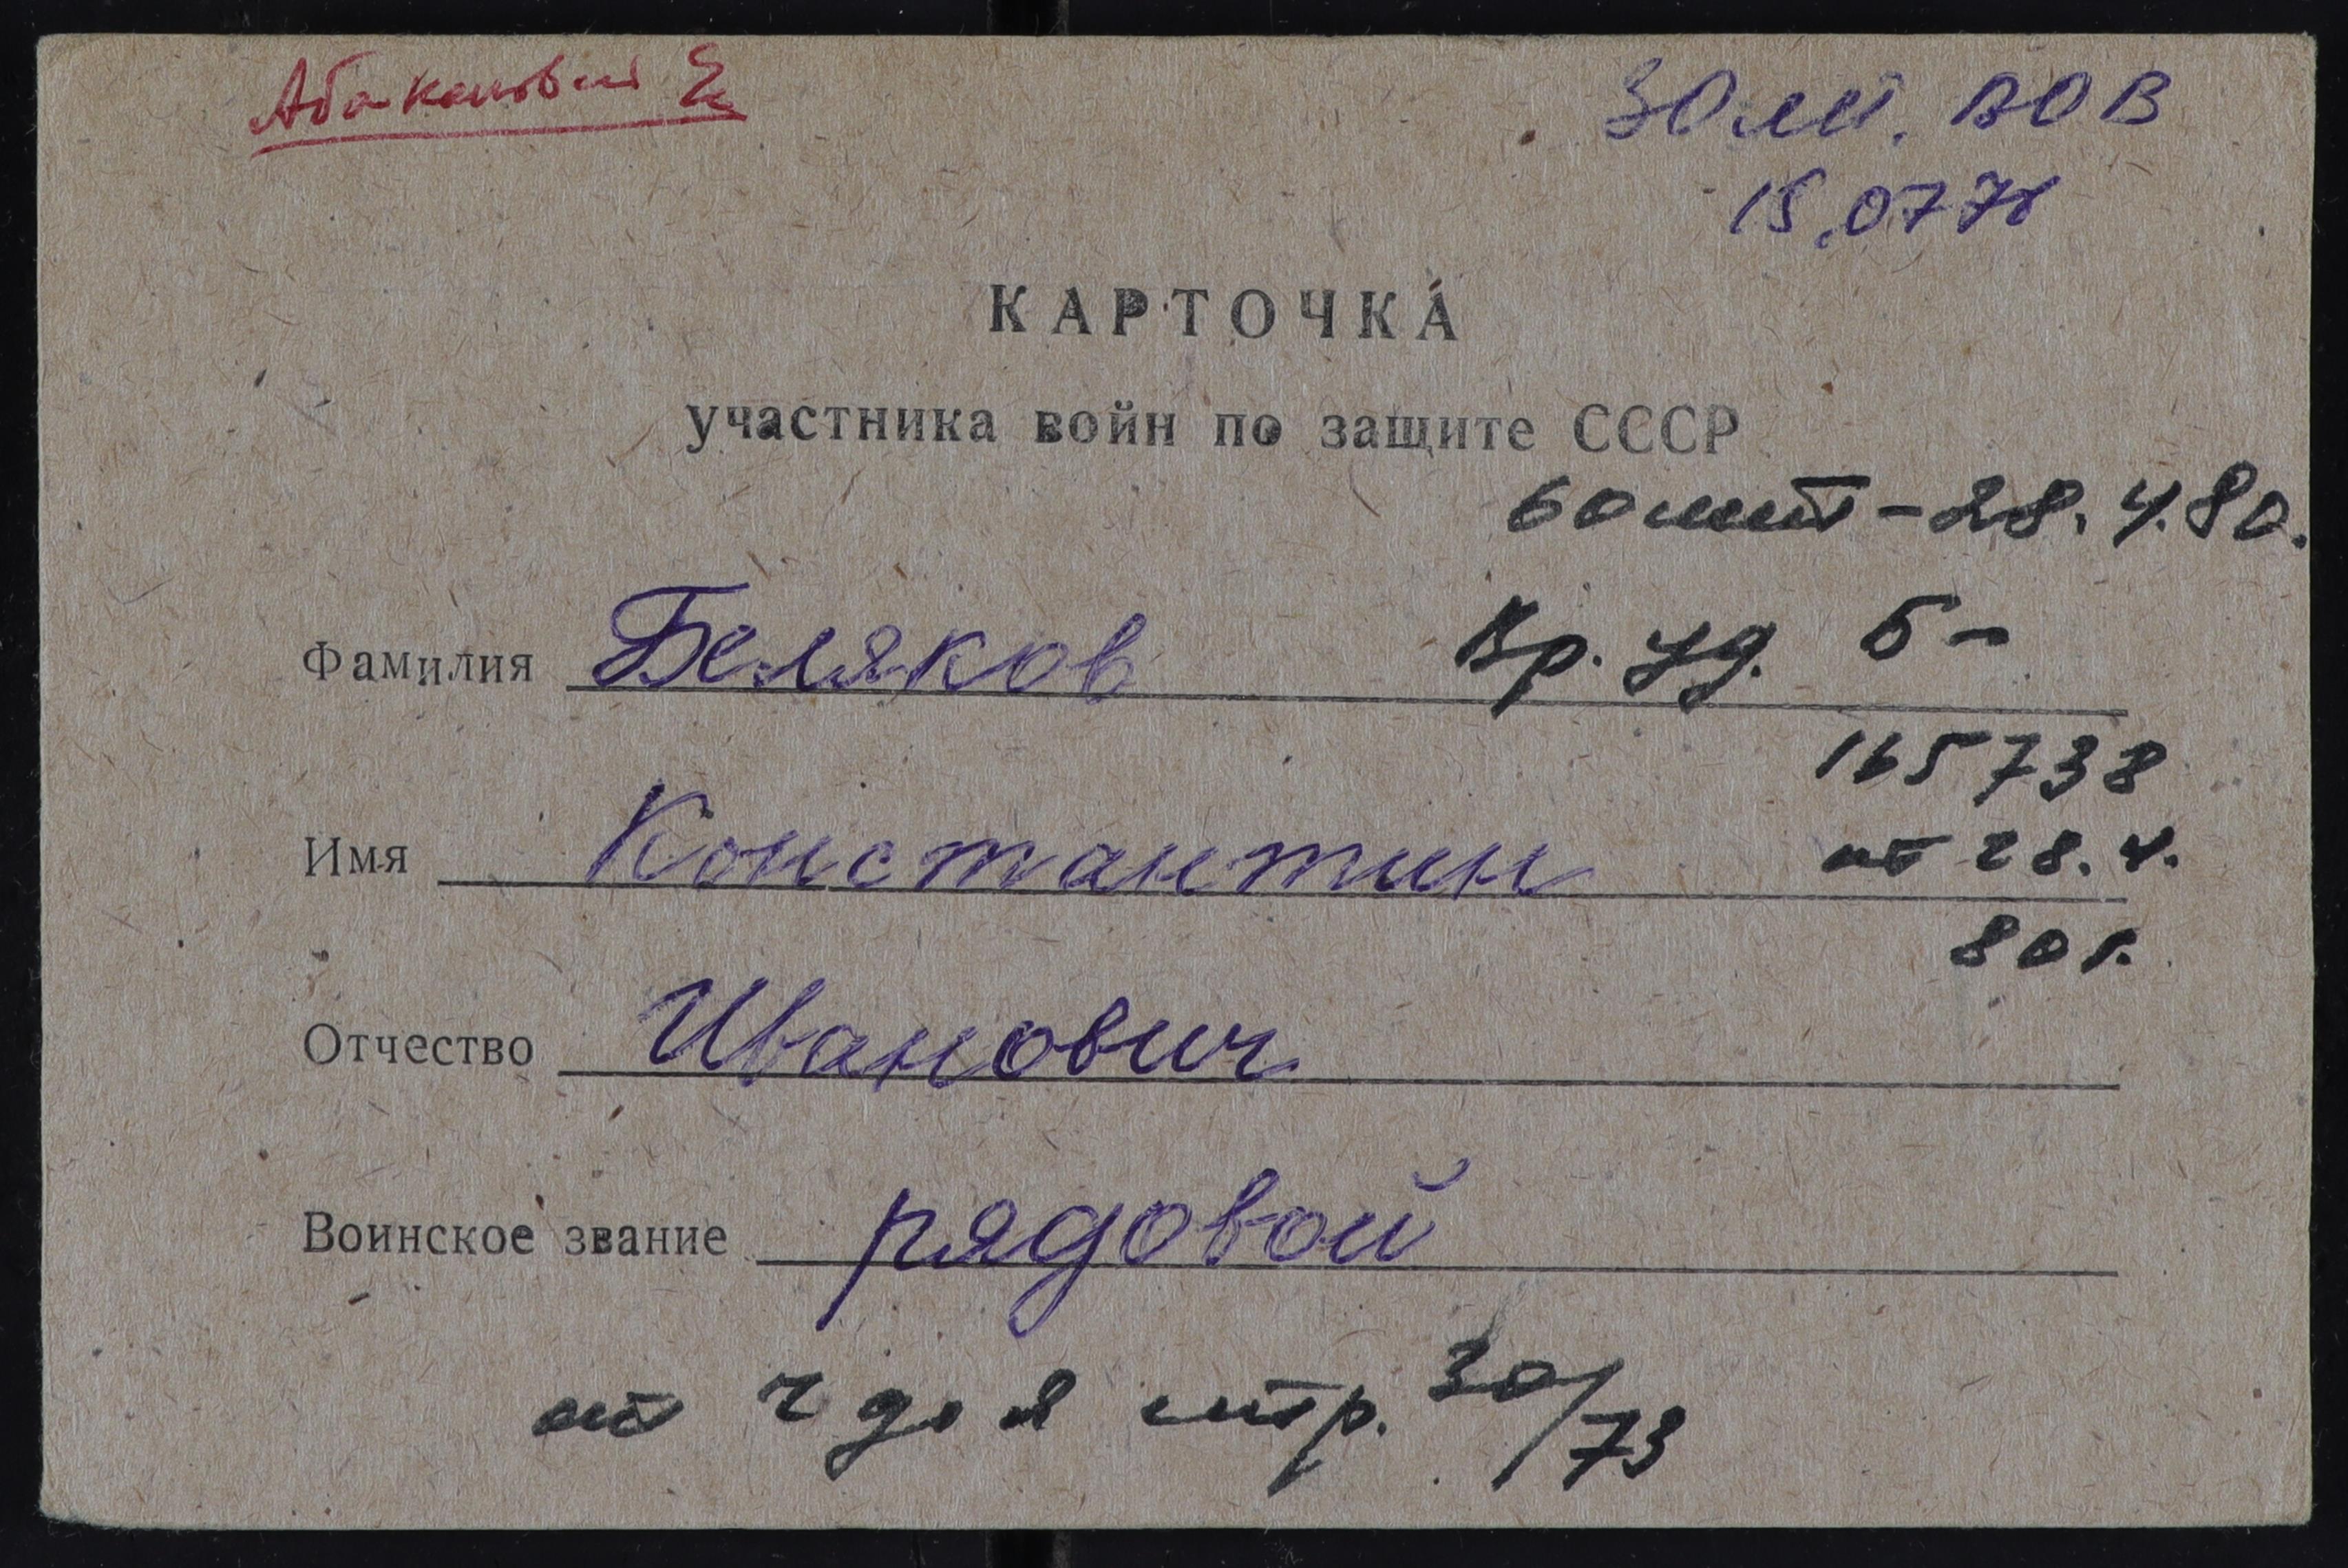 30 лет. ВОВ
15.07.76
КАРТОЧКА
участника войн по защите СССР
60 лет – 28.4.80.
Фамилия Беляков Вр. уд. Б –
165738
Имя Константин от 28.4.
80 г.
Отчество Иванович
Воинское звание рядовой
от Ч до Я стр. 30/73